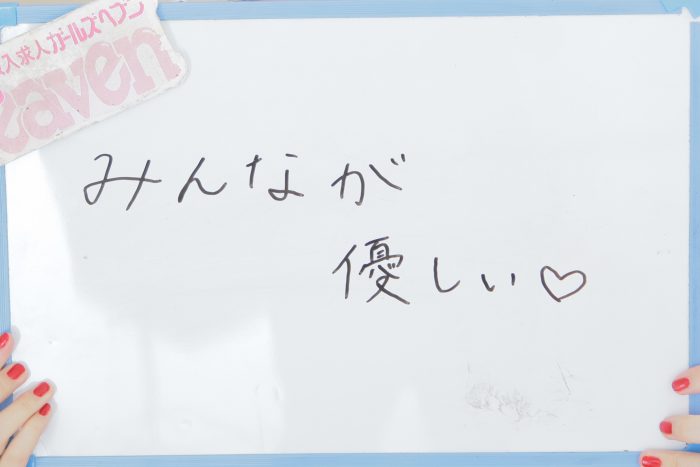 入求人ガールズヘブン
eaven
みんなが
優しい♡